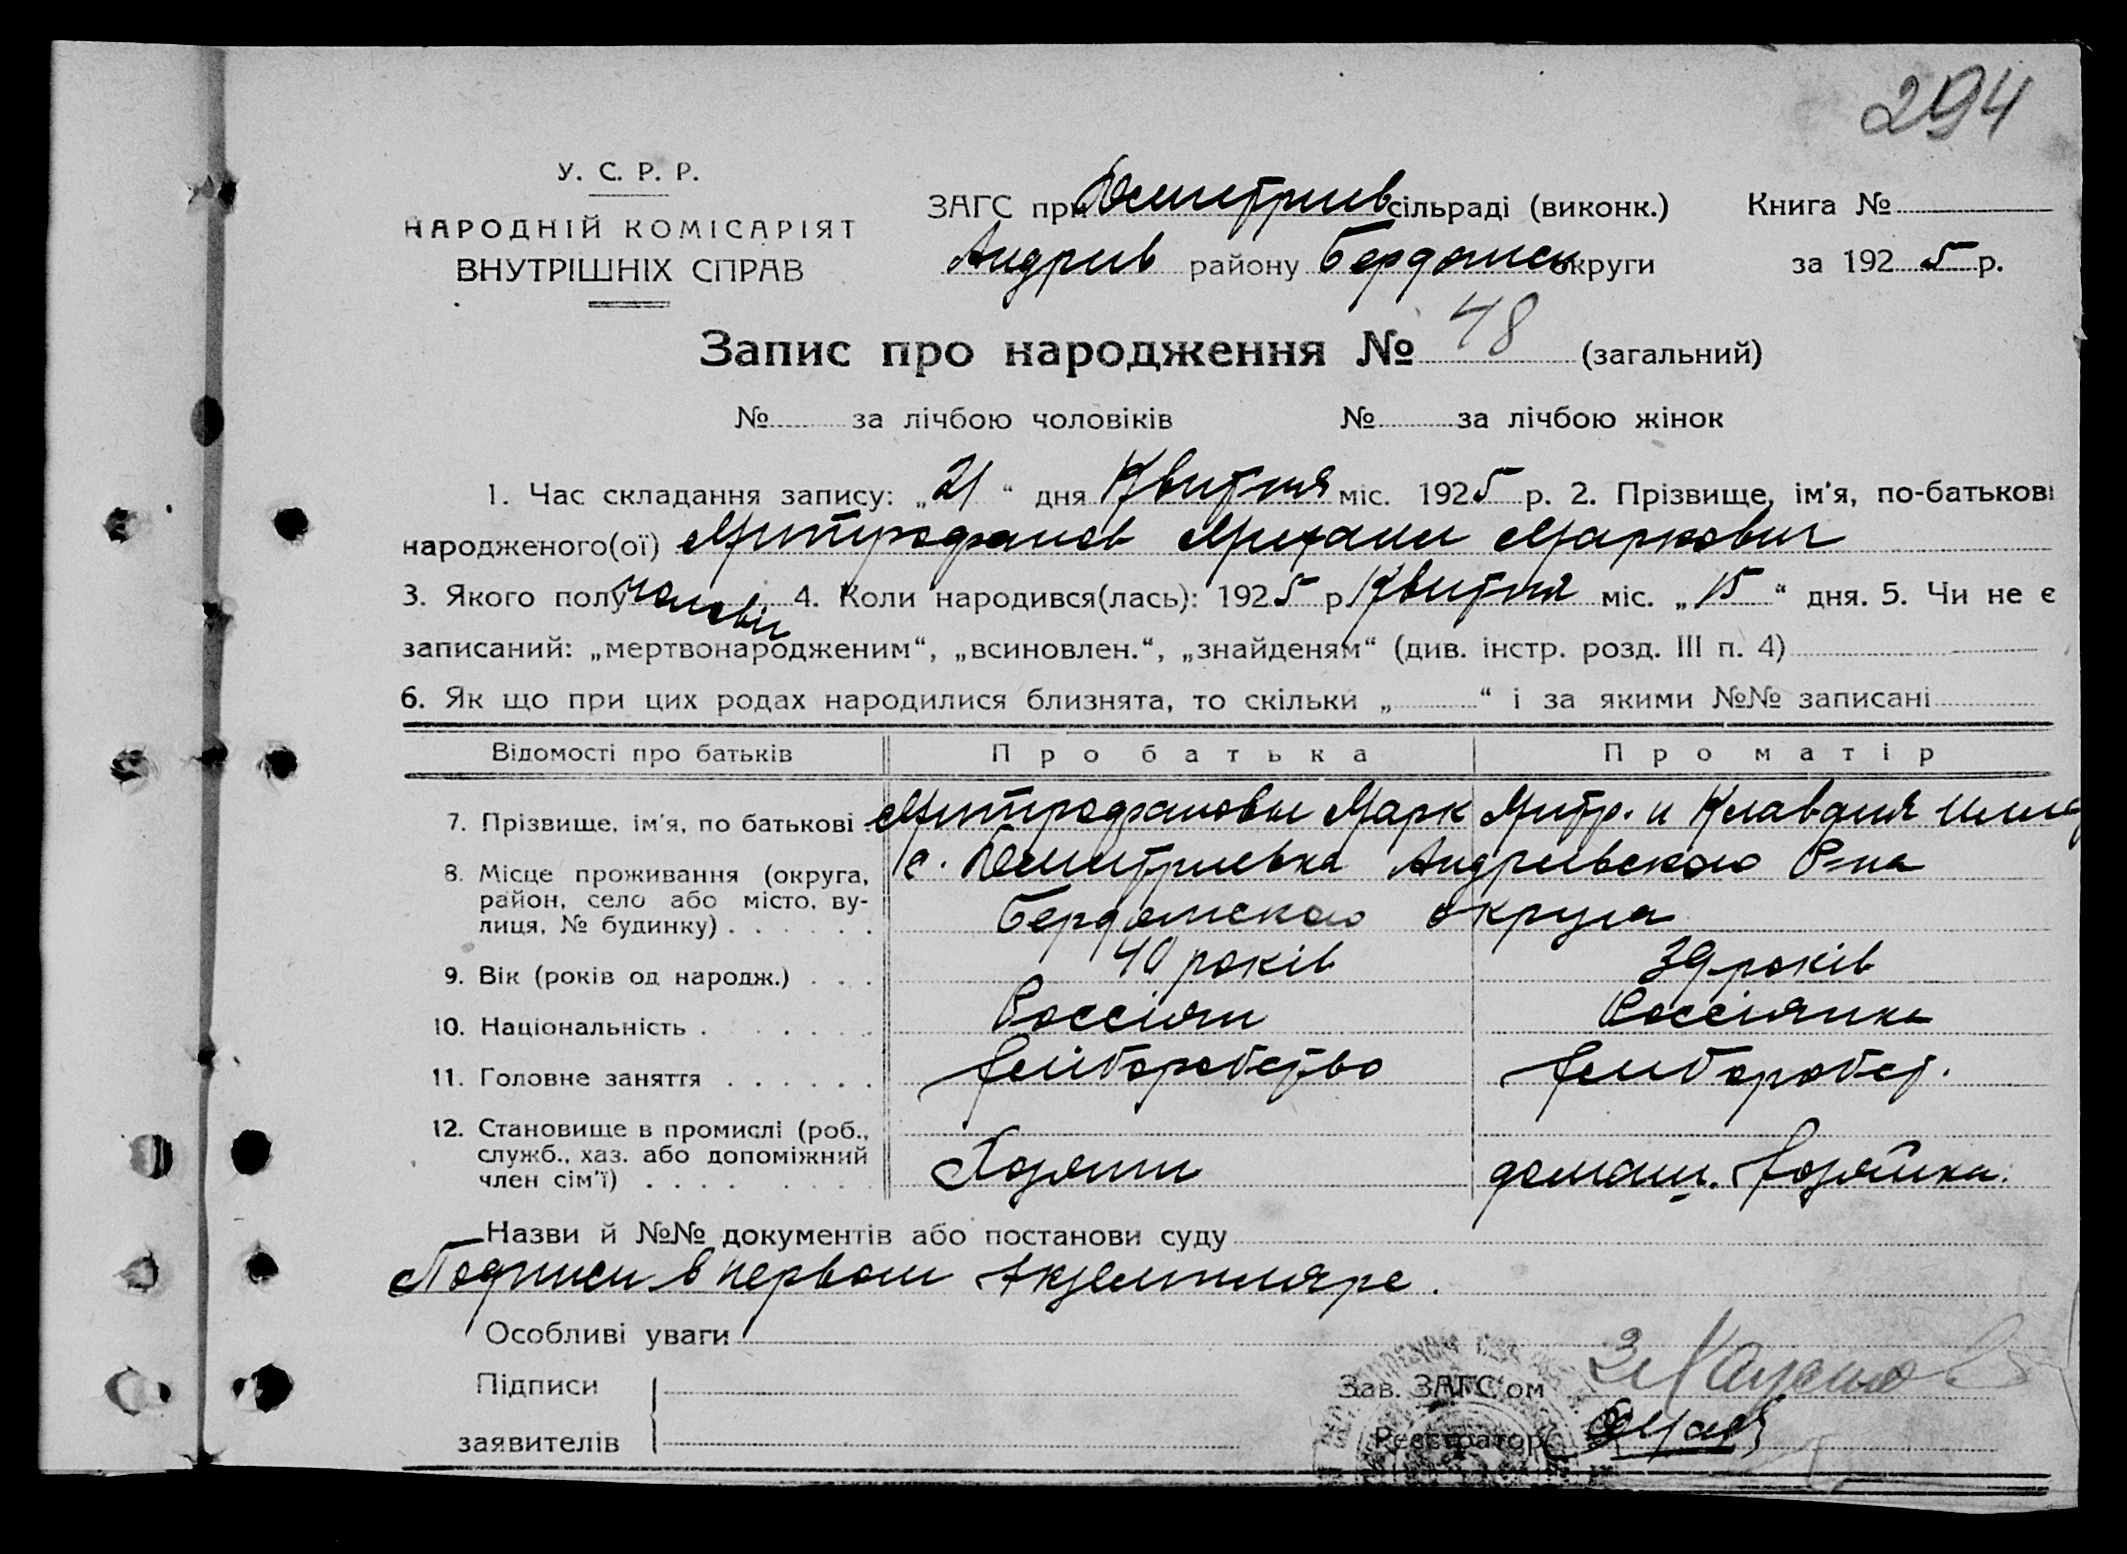 294
У. С. Р. Р.
НАРОДНІЙ КОМІСАРІЯТ
ВНУТРІШНІХ СПРАВ
ЗАГС при Дмитриев сільраді (виконк.) Книга №
Андрив району Бердянськ округи за 1925 р.
Запис про народження № 48 (загальний)
№ за лічбою чоловіків № за лічбою жінок
1. Час складання запису: „21“ дня Квитня міс. 1925 р. 2. Прізвище, ім'я, по-батькові
народженого(ої) Митрофанов Михаил Маркович
3. Якого полу чолові 4. Коли народився(лась): 1925 р. Квитня міс. „15“ дня. 5. Чи не є
записаний: „мертвонародженим“, „всиновлен.“, „знайденям“ (див. інстр. розд. III п. 4)
6. Як що при цих родах народилися близнята, то скільки „ “ і за якими №№ записані
Відомості про батьків Про батька Про матір
7. Прізвище, ім'я, по батькові Митрофановы Марк Митр. и Клавдия
8. Місце проживання (округа, с. Дмитриевка Андриевского Р-на
район, село або місто, ву-
лиця, № будинку) Бердянского округа
9. Вік (років од народж.) 40 років 39 років
10. Національність Россіян Россіянка
11. Головне заняття хлиборобство хлибороб.
12. Становище в промислі (роб.,
служб., хаз. або допоміжний
член сім'ї) Хозяин домаш. хозяйка.
Назви й №№ документів або постанови суду
Подписи в первом экземпляре.
Особливі уваги
Підписи Зав. ЗАГС'ом
заявителів Реєстратор